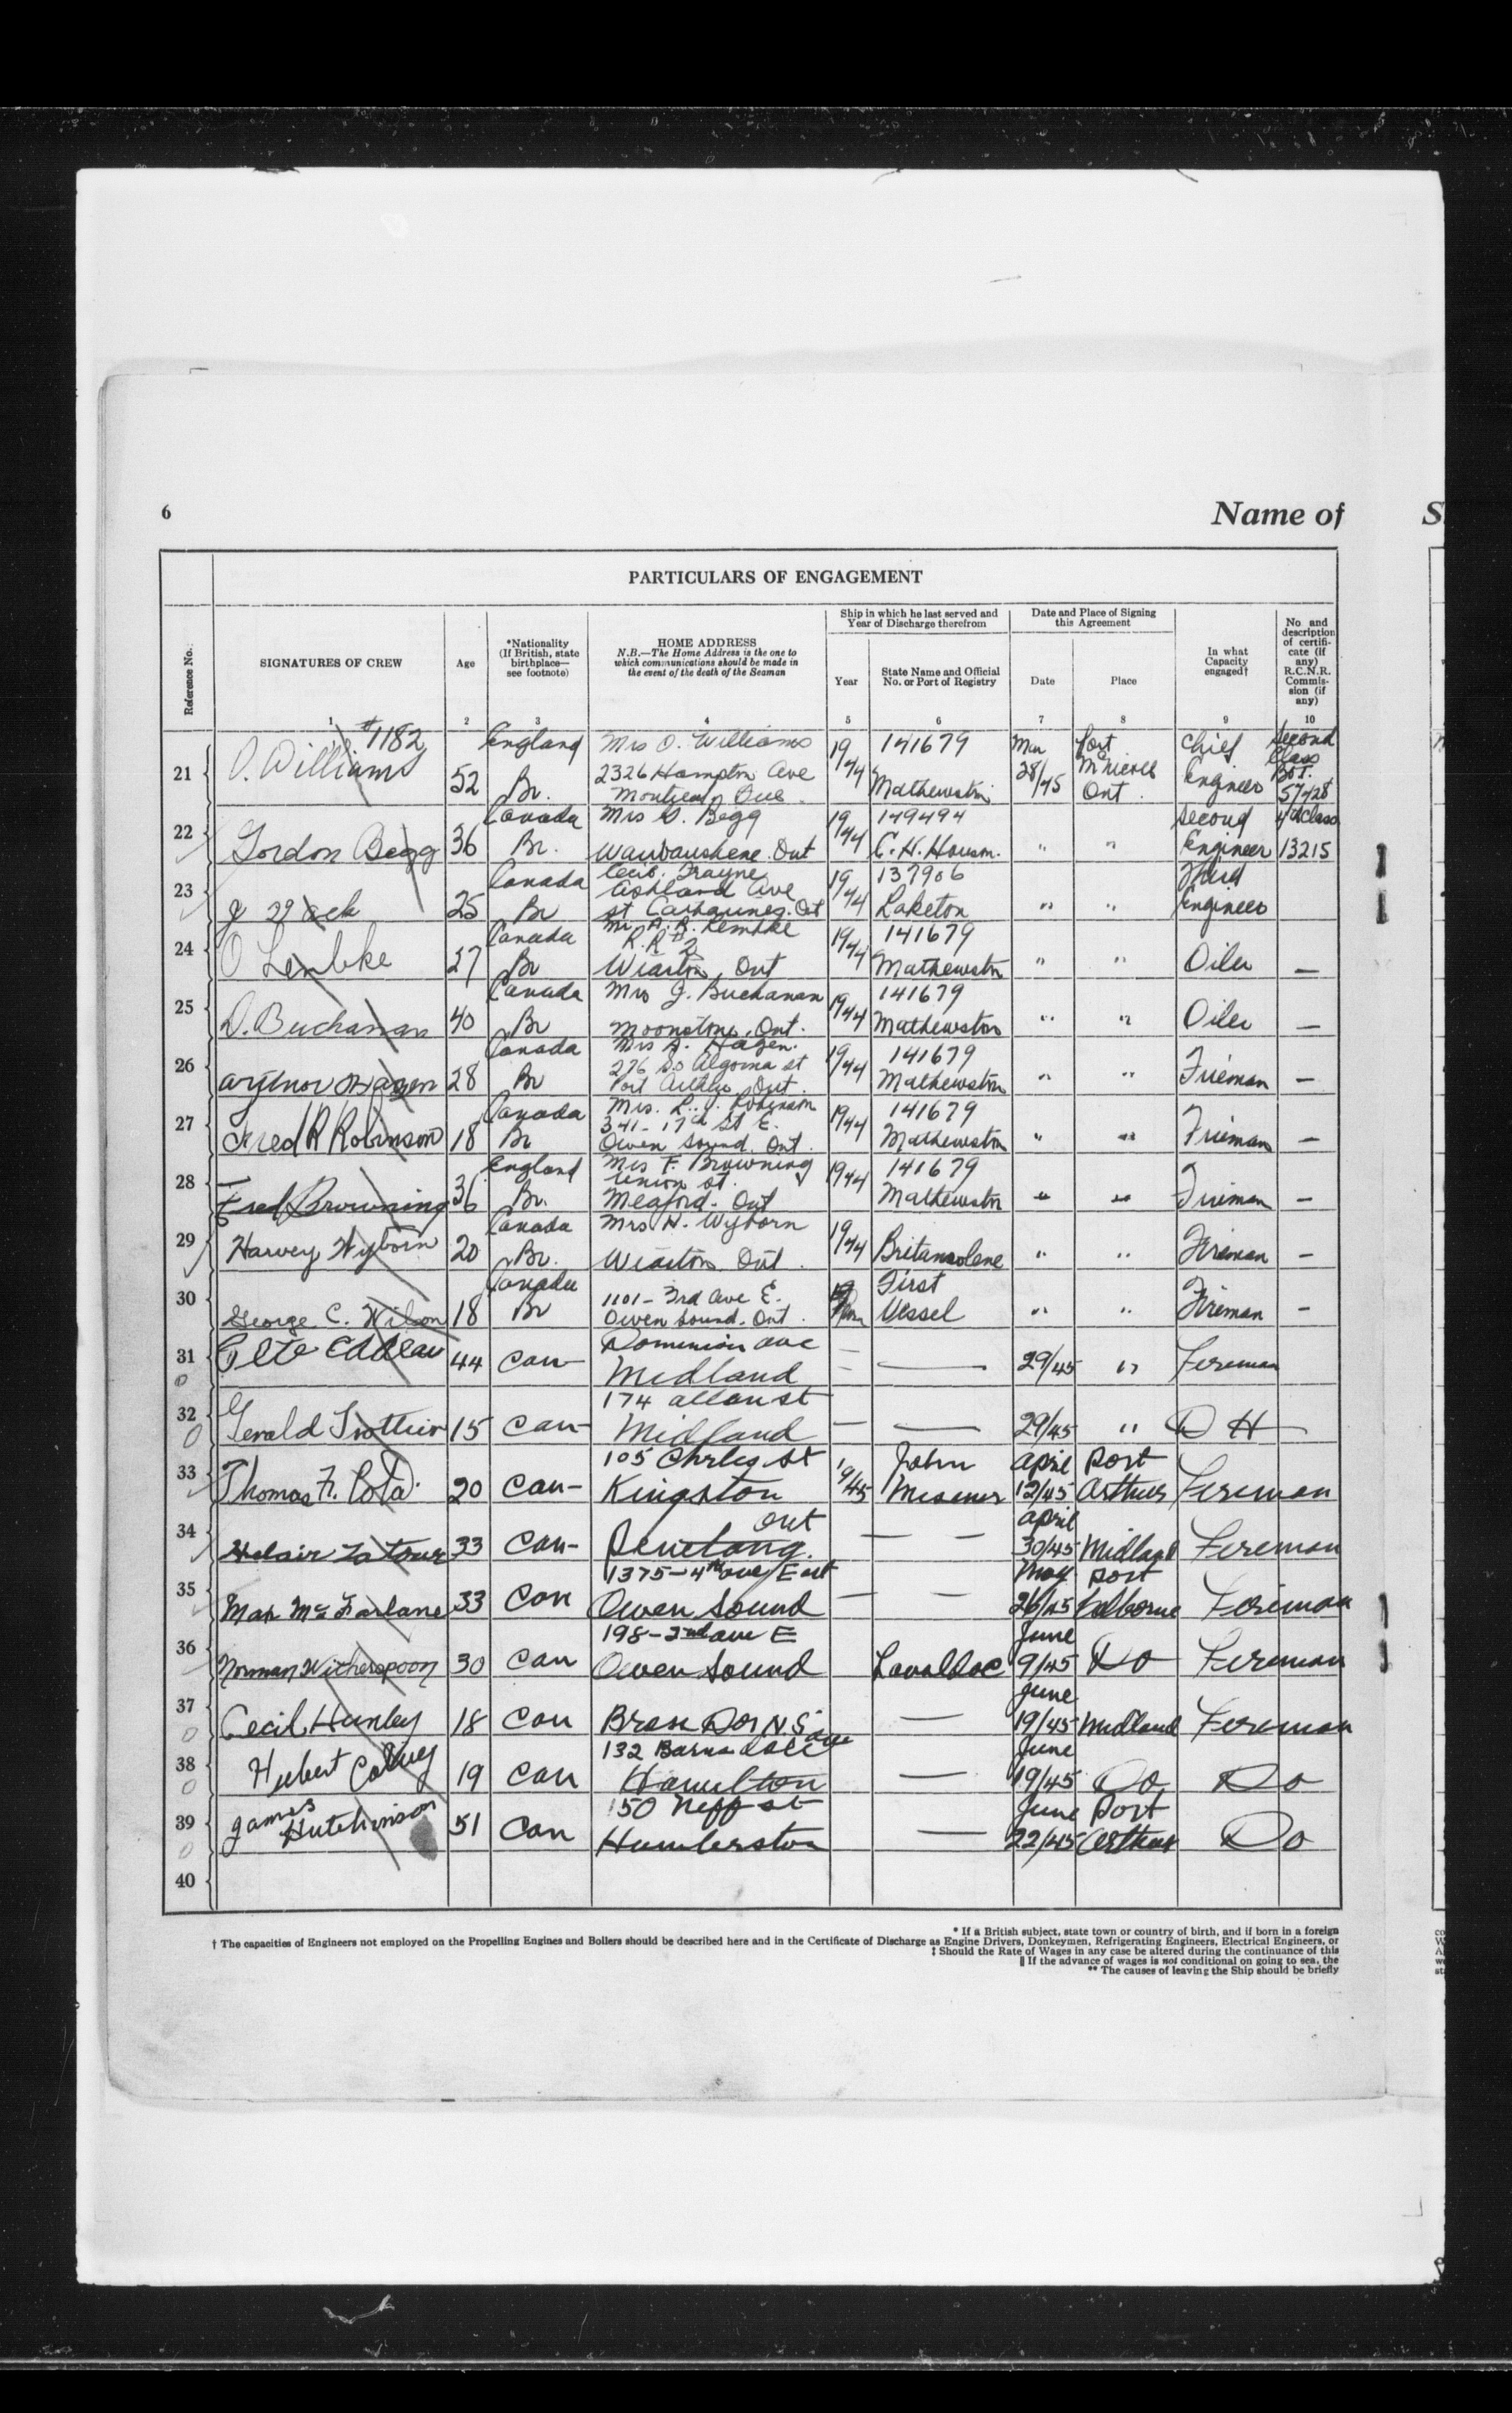 6
Name of
S
PARTICULARS OF ENGAGEMENT
Reference No.
SIGNATURES OF CREW
Age
*Nationality
(If British, state
birthplace—
see footnote)
HOME ADDRESS
N.B.—The Home Address is the one to
which communications should be made in
the event of the death of the Seaman
Ship in which he last served and
Year of Discharge therefrom
Year
State Name and Official
No. or Port of Registry
Date and Place of Signing
this Agreement
Date
Place
In what
Capacity
engaged†
No and
description
of certifi-
cate (if
any)
R.C.N.R.
Commis-
sion (if
any)
1 2 3 4 5 6 7 8 9 10
#1182 England Mrs O. Williams 19 141679 Mar Port Chief Second
21 O. Williams 52 Br. 2326 Hampton Ave 44 Mathewston 28/45 McNicoll Engineer Class
Montreal Que. Ont. 57428
22 Canada Mrs G. Begg 19 149494 Second 4th Class
Gordon Begg 36 Br. Waubaushene Ont 44 C. H. Houson. " " Engineer 13215
23 Canada Cecil. Frayne 19 137906 Third
25 Br Ashland Ave 44 Laketon " " Engineer
St Catharines. Ont
24 Canada Mr A. R. Lembke 19 141679
O Lembke 27 Br R.R 2 44 Mathewston " " Oiler —
Wiarton, Ont
25 Canada Mrs J. Buchanan 1944 141679
D. Buchanan 40 Br Moonstone. Ont. Mathewston " " Oiler —
26 Canada Mrs A. Hagen. 1944 141679
Hagen 28 Br 276 So Algoma st Mathewston " " Fireman —
Port Arthur Ont.
27 Canada Mrs. L. J. Robinson 1944 141679
Fred R Robinson 18 Br 341- 17th St E. Mathewston " " Fireman —
Owen Sound. Ont.
28 England Mrs F. Browning 1944 141679
Fred Browning 36 Br. Union st. Mathewston " " Fireman —
Meaford. Ont
29 Canada Mrs H. Wyborn 1944
Harvey Wyborn 20 Br. Wiarton Ont. Britamolene " " Fireman —
30 Canada 1101- 3rd Ave E. First
George C. Wilson 18 Br Owen Sound. Ont. Vessel " " Fireman —
31 Dominion ave
44 Can Midland — — 29/45 " Fireman
32 174 allan st
Gerald Trottier 15 Can- Midland — — 29/45 " D H —
33 105 Chrley St 19/45 John April Port
Thomas F. 20 Can- Kingston Misener 12/45 Arthur Fireman
34 Ont April
Latour 33 Can- Penetang. — — 30/45 Midland Fireman
35 1375-4th ave East May Port
Max McFarlane 33 Can Owen Sound — — 26/45 Colborne Fireman
36 198-2nd ave E June
Norman Witherspoon 30 Can Owen Sound Lavaldoc 9/45 Do Fireman
37 June
Cecil Hunley 18 Can Bras Dor N.S. — 19/45 Midland Fireman
38 132 Barnsdale ave June
Hubert 19 Can Hamilton — 19/45 Do Do
39 150 Neff st June Port
James Hutchinson 51 Can Humberston — 22/45 Arthur Do
40
* If a British subject, state town or country of birth, and if born in a foreign
† The capacities of Engineers not employed on the Propelling Engines and Boilers should be described here and in the Certificate of Discharge as Engine Drivers, Donkeymen, Refrigerating Engineers, Electrical Engineers, or
‡ Should the Rate of Wages in any case be altered during the continuance of this
‖ If the advance of wages is not conditional on going to sea, the
** The causes of leaving the Ship should be briefly